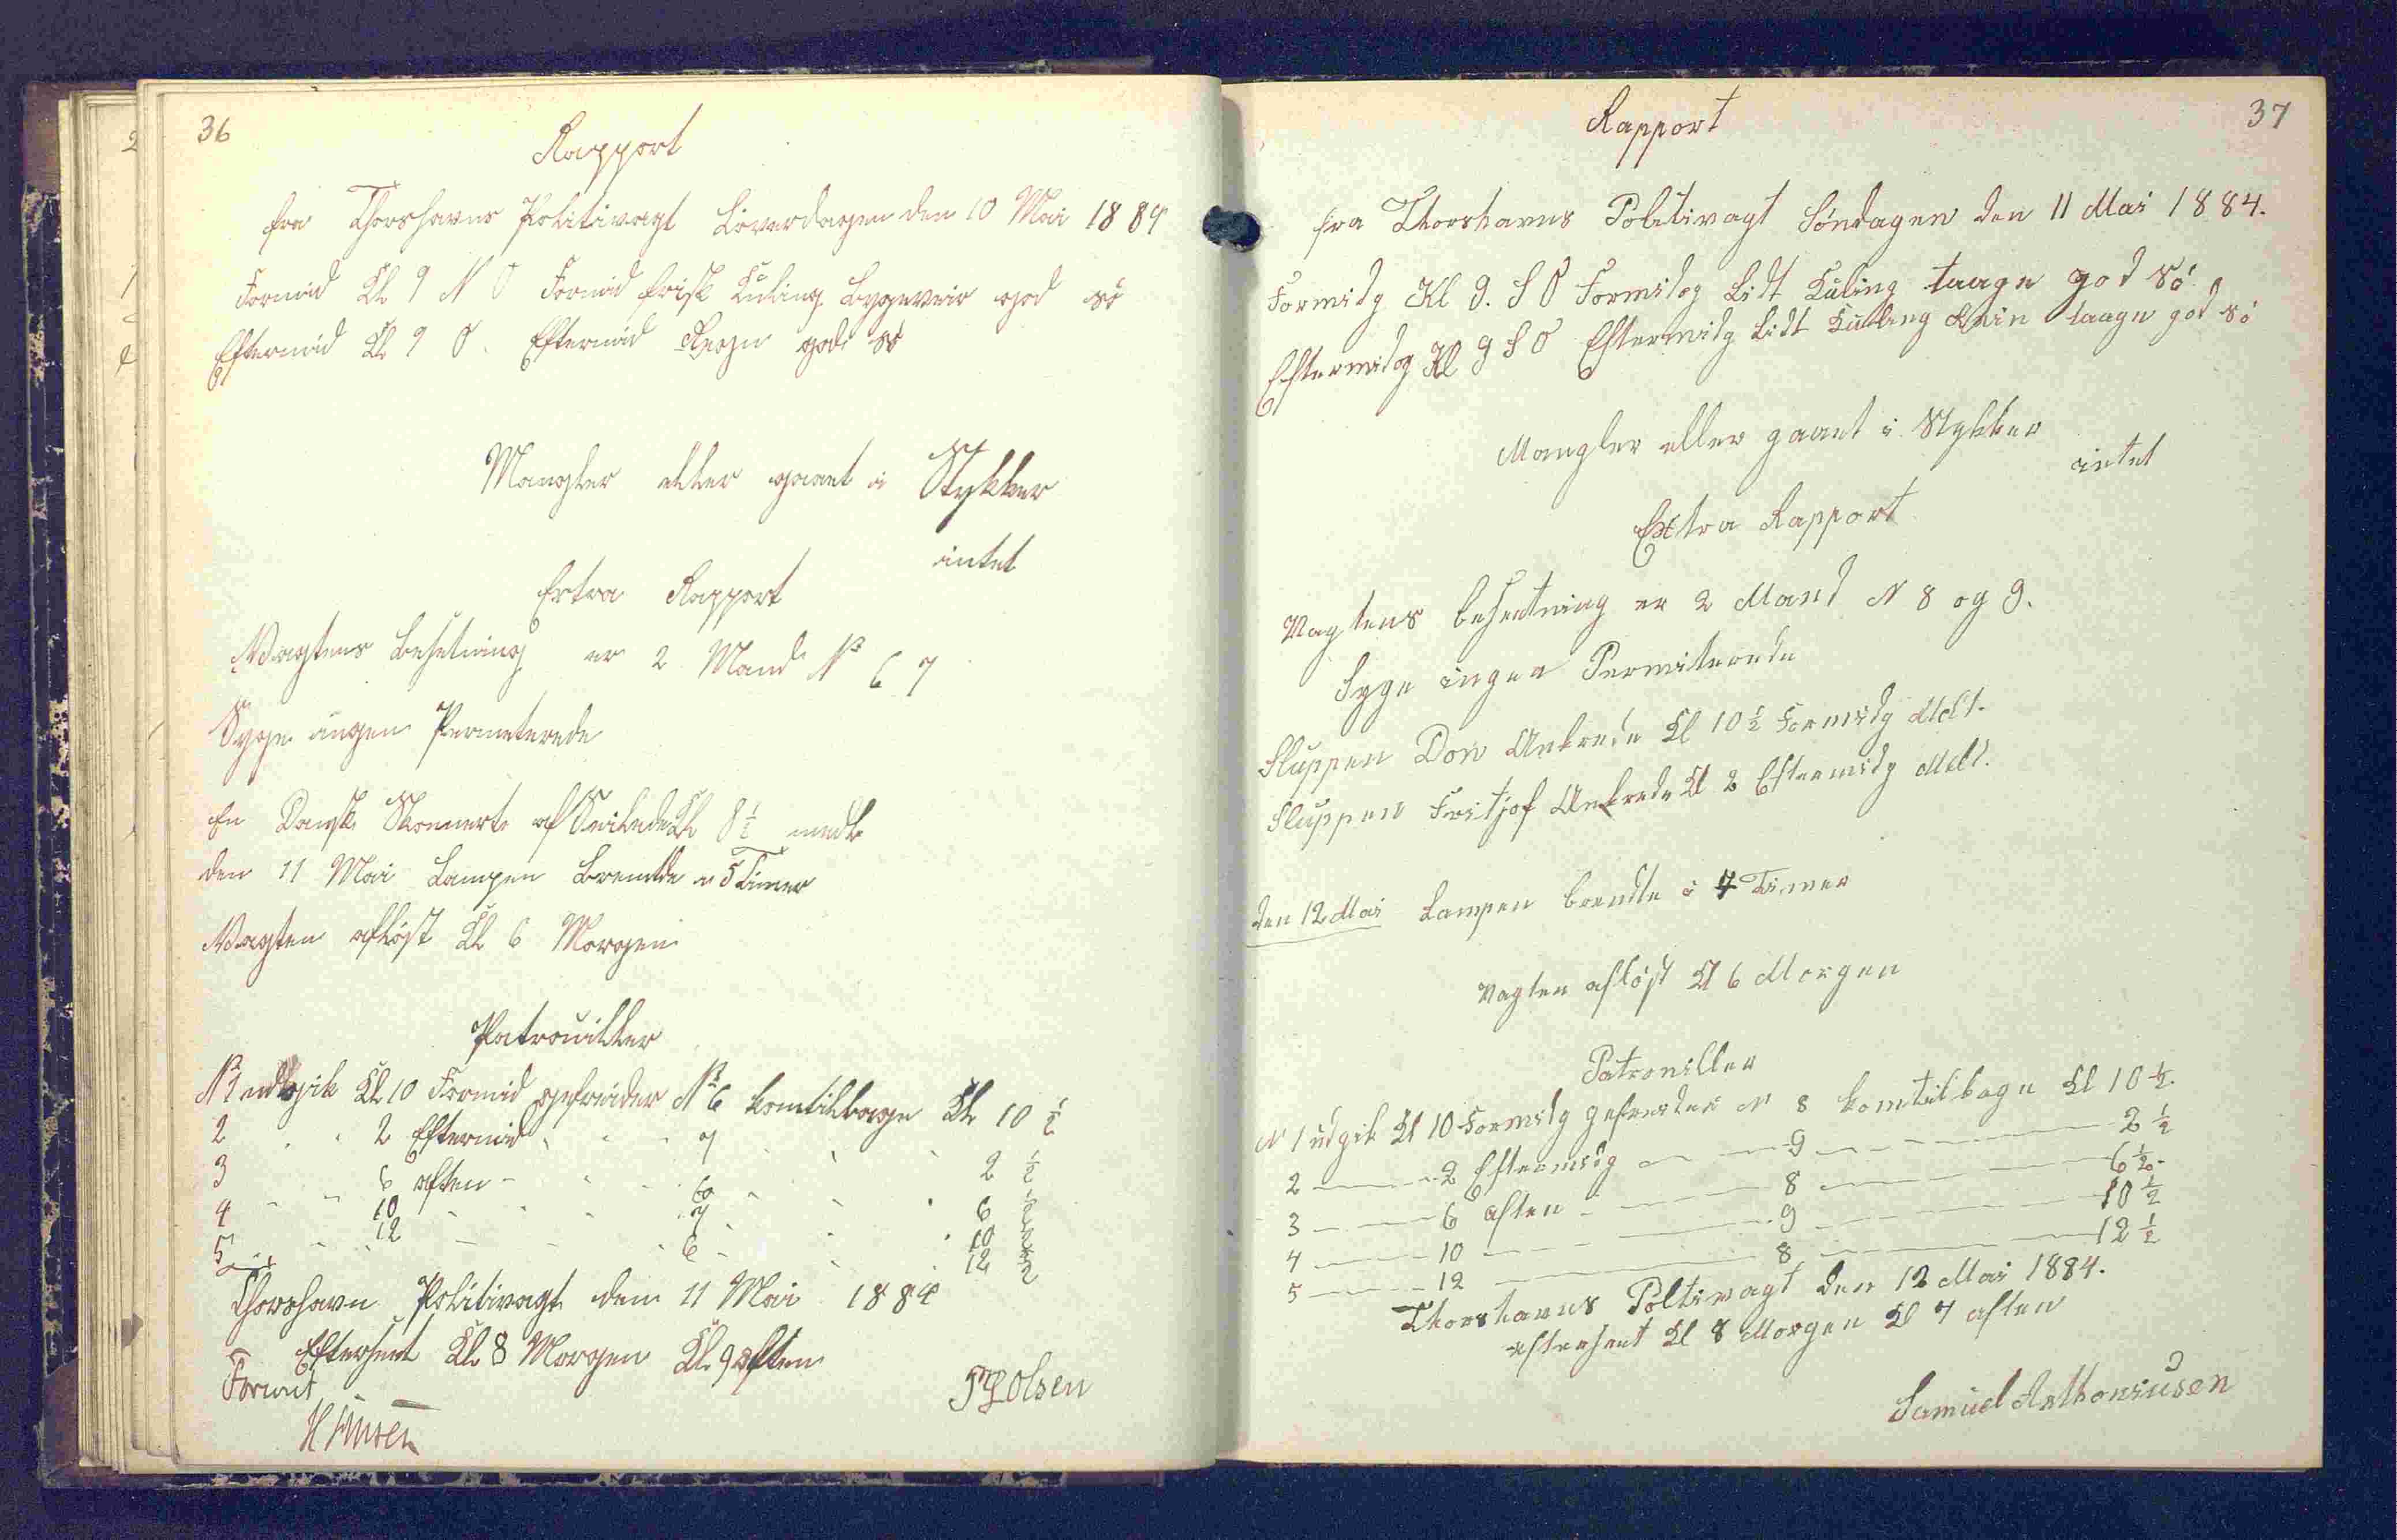 36
Rapport
fra Thorshavns Politivagt Löverdagen den 10 Mai 1884
Formid Kl 9 N O Formid frisk Kuling Bygeveir god sö
Eftermid Kl 9 O. Eftermid Regn god sö
Mangler eller gaaet i Stykker
intet
Extra Rapport
Vagtens Besetning er 2 Mand No 6 7
Syge ingen Permeterede
En Dansk Skonnert af Seilede Kl 8½
den 11 Mai Lampen Brendte i 5 Timer
Vagten aflöst Kl 6 Morgen
Patrouiller
No 1 udgik Kl 10 Formid gefreider No 6 kom tilbage Kl 10 ½
2 " " 2 Eftermid " " 7 " " " 2 ½
3 " " 6 aften " " 6 " " " 6 ½
4 " " 10 " " 7 " " " 10 ½
5 " " 12 " " 6 " " " 12 ½
Thorshavn Politivagt den 11 Mai 1884
Efterseet Kl 8 Morgen Kl 9 aften
Olsen
37
Rapport
fra Thorshavns Politivagt Söndagen den 11 Mai 1884.
Formidg Kl 9. S O Formidag Lidt Kuling taage god sö
Eftermidg Kl 9 S O Eftermidg Lidt Kuling taage god sö
Mangler eller gaaet i Stykker
intet
Extra Rapport
Vagtens besætning er 2 Mand N 8 og 9.
Syge ingen Permiterede
Sluppen Don Ankrede Kl 10½ Formidg Meldt.
Sluppen Fritjof Ankrede Kl 2 Eftermidg Meldt.
den 12 Mai Lampen brendte i 4 Timer
Vagten aflöst Kl 6 Morgen
Patrouiller
N 1 udgik Kl 10 Formidg gefreider N 8 kom tilbage Kl 10½
2 — 2 Eftermidg — 9 — 2½
3 — 6 aften — 8 — 6½
4 — 10 — 9 — 10½
5 — 12 — 8 — 12½
Thorshavns Poltivagt den 12 Mai 1884.
efterseet Kl 8 Morgen Kl 7 aften
Samuel Anthoniusen